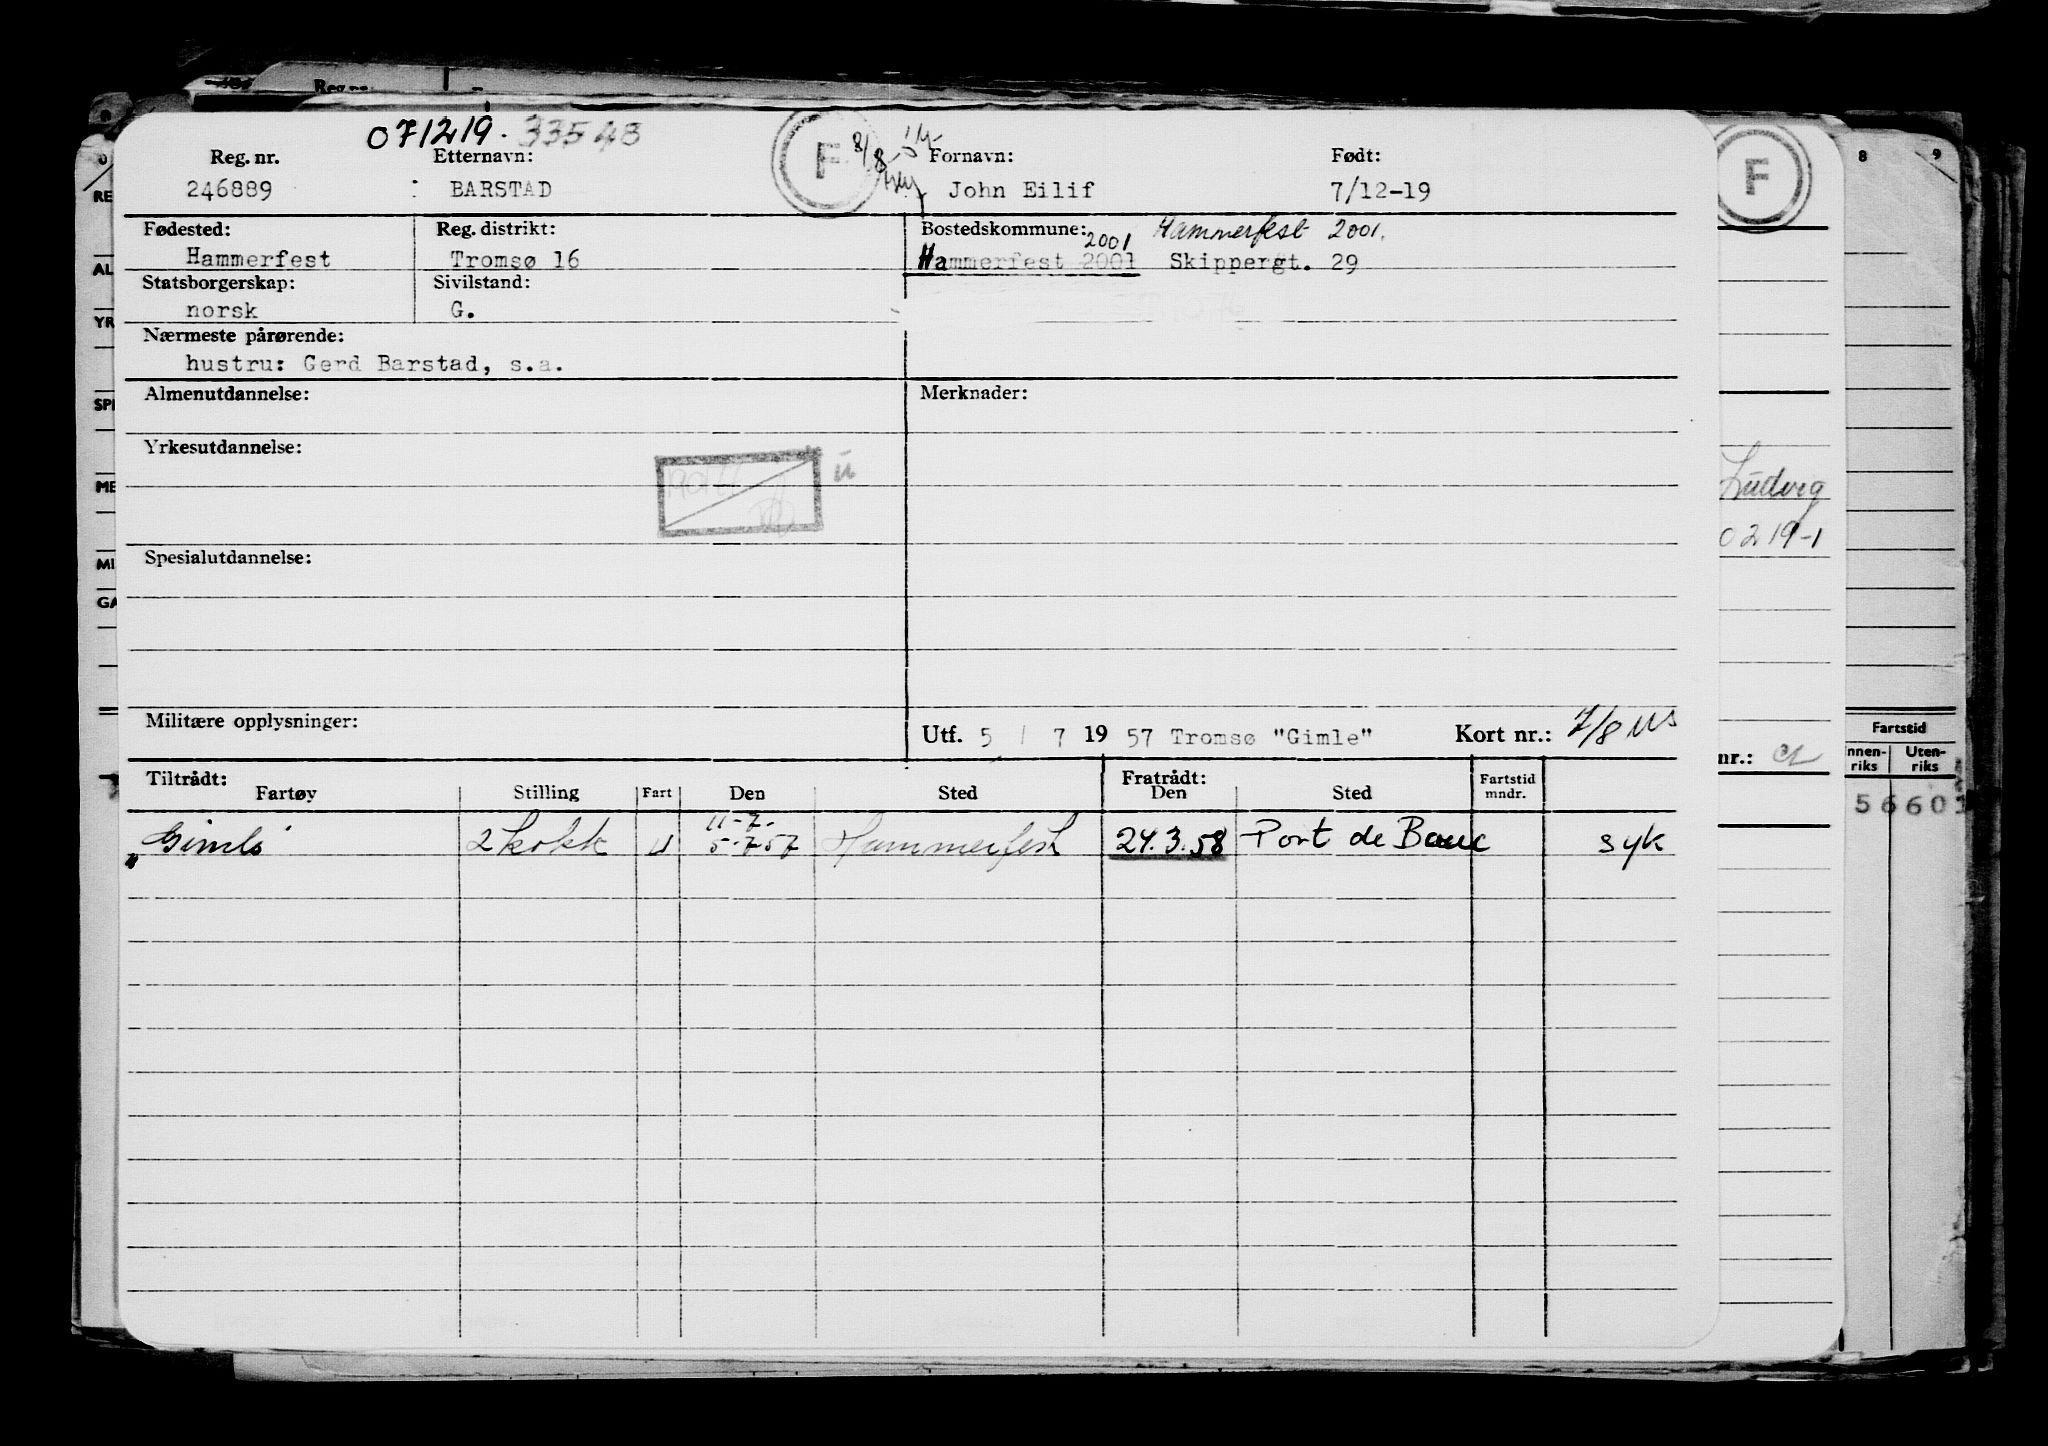 071219. 33548
Reg. nr. Etternavn: Fornavn: Født:
246889 BARSTAD F 8/8 John Eilif 7/12-19
Fødested: Reg. distrikt: Bostedskommune: 2001 Hammerfest 2001.
Hammerfest Tromsø 16 Hammerfest 2001 Skippergt. 29
Statsborgerskap: Sivilstand:
norsk G.
Nærmeste pårørende:
hustru: Gerd Barstad, s.a.
Almenutdannelse: Merknader:
Yrkesutdannelse:
Spesialutdannelse:
Militære opplysninger:
Utf. 5 / 7 19 57 Tromsø "Gimle" Kort nr.: 7/8
Tiltrådt: Fratrådt:
Fartøy Stilling Fart Den Sted Den Sted Fartstid mndr.
11-7-
2 kokk U 5-7-57 Hammerfest 24.3.58 Port de Bouc syk
F
8 9
Ludvig
0219-1
nr.:
Fartstid
Innen-riks Uten-riks
56601
Reg. nr.
RE
AL
YR
SPE
ME
MI
GA